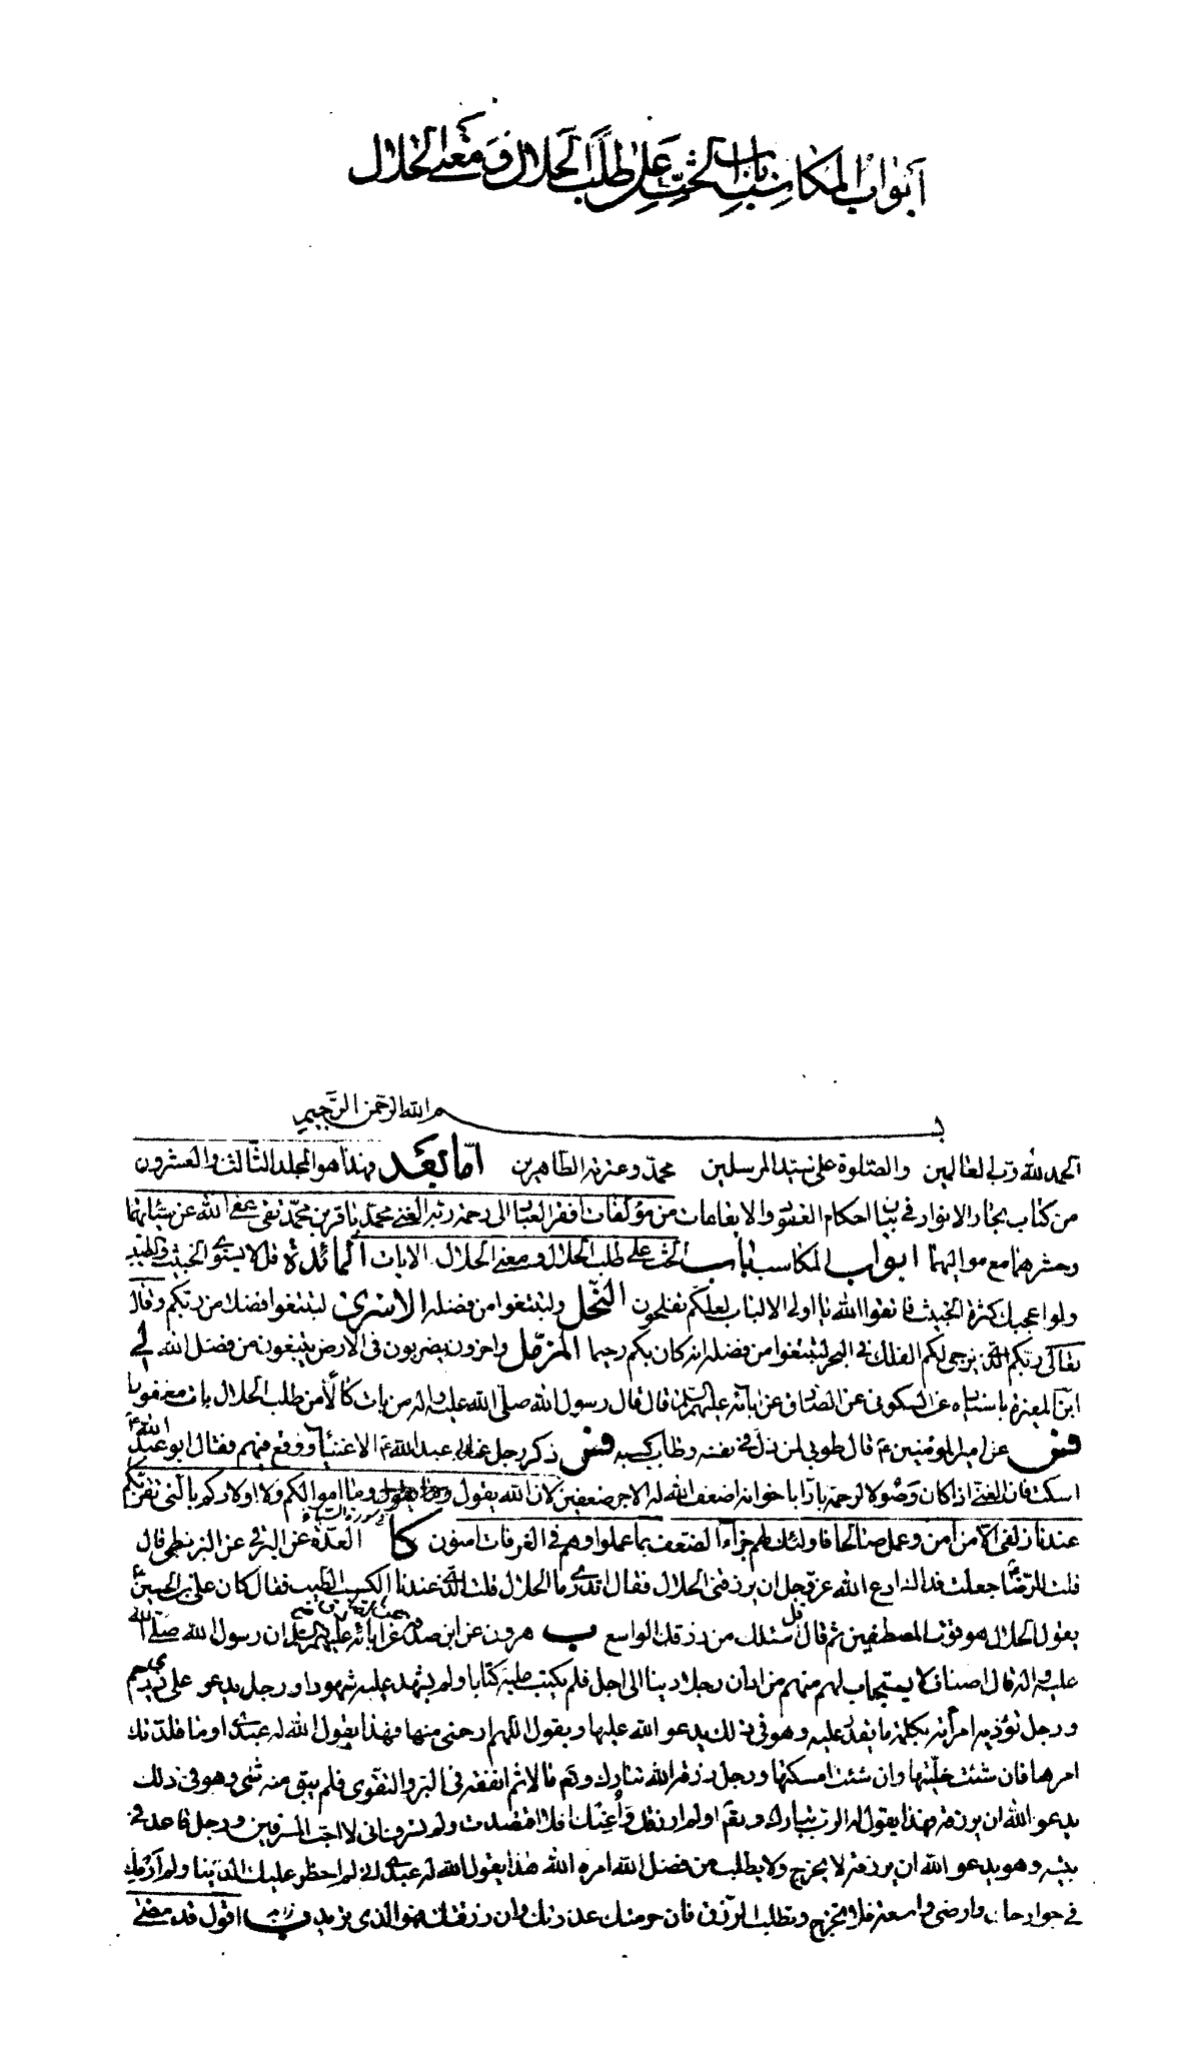 أبواب المكاسب باب الحث على طلب الحلال ومعنى الحلال
بسم الله الرحمن الرحيم
الحمد لله رب العالمين والصلوة على سيد المرسلين محمد وعترته الطاهرين أما بعد فهذا هو المجلد الثالث والعشرون
من كتاب بحار الانوار في بيان احكام العقود والايقاعات من مؤلفات افقر العباد الى رحمة ربه الغني محمد باقر بن محمد تقي عفى الله عن سيئاتهما
وحشرهما مع مواليهما ابواب المكاسب باب الحث على طلب الحلال ومعنى الحلال الايات المائدة قل لا يستوي الخبيث والطيب
ولو اعجبك كثرة الخبيث فاتقوا الله يا اولي الالباب لعلكم تفلحون النحل ولتبتغوا من فضله الاسرى لتبتغوا فضلا من ربكم وقال
تعالى ربكم الذي يزجي لكم الفلك في البحر لتبتغوا من فضله انه كان بكم رحيما المزمل واخرون يضربون في الارض يبتغون من فضل الله لى
ابن المغيرة باسناده عن السكوني عن الصادق عن ابائه عليهم السلام قال قال رسول الله صلى الله عليه واله من بات كالا من طلب الحلال بات مغفورا
فس عن امير المؤمنين ع قال طوبى لمن ذل في نفسه وطاب كسبه فس ذكر رجل عند ابي عبد الله ع الاغنياء ووقع فيهم فقال ابو عبد الله ع
اسكت فان الغني اذا كان وصولا لرحمه بارا باخوانه اضعف الله له الاجر ضعفين لان الله يقول وما اموالكم ولا اولادكم بالتي تقربكم
عندنا زلفى الا من امن وعمل صالحا فاولئك لهم جزاء الضعف بما عملوا وهم في الغرفات امنون كا العدة عن البرقي عن البزنطي قال
قلت للرضا ع جعلت فداك ادع الله عز وجل ان يرزقني الحلال فقال اتدري ما الحلال قلت الذي عندنا الكسب الطيب فقال كان علي بن الحسين ع
يقول الحلال هو قوت المصطفين ثم قال قل اسئلك من رزقك الواسع ب هرون عن ابن صدقة عن ابائه عليهم السلام ان رسول الله صلى الله
عليه واله قال اصناف لا يستجاب لهم منهم من ادان رجلا دينا الى اجل فلم يكتب عليه كتابا ولم يشهد عليه شهودا ورجل يدعو على ذي رحم
ورجل تؤذيه امرأته بكل ما يقدر عليه وهو في ذلك يدعو الله عليها ويقول اللهم ارحني منها فهذا يقول الله له عبدي اوما قلدتك
امرها فان شئت خليتها وان شئت امسكتها ورجل رزقه الله تبارك وتعالى مالا ثم انفقه في البر والتقوى فلم يبق منه شيء وهو في ذلك
يدعو الله ان يرزقه فهذا يقول له الرب تبارك وتعالى اولم ارزقك واغنك افلا اقتصدت ولم تسرف اني لا احب المسرفين ورجل قاعد في
بيته وهو يدعو الله ان يرزقه لا يخرج ولا يطلب من فضل الله كما امره الله هذا يقول الله له عبدي اني لم احظر عليك الدنيا ولم ارمك
في جوارحك وارضي واسعة فلا تخرج وتطلب الرزق فان حرمتك عذرتك وان رزقتك فهو الذي تريد ب اقول قد مضى